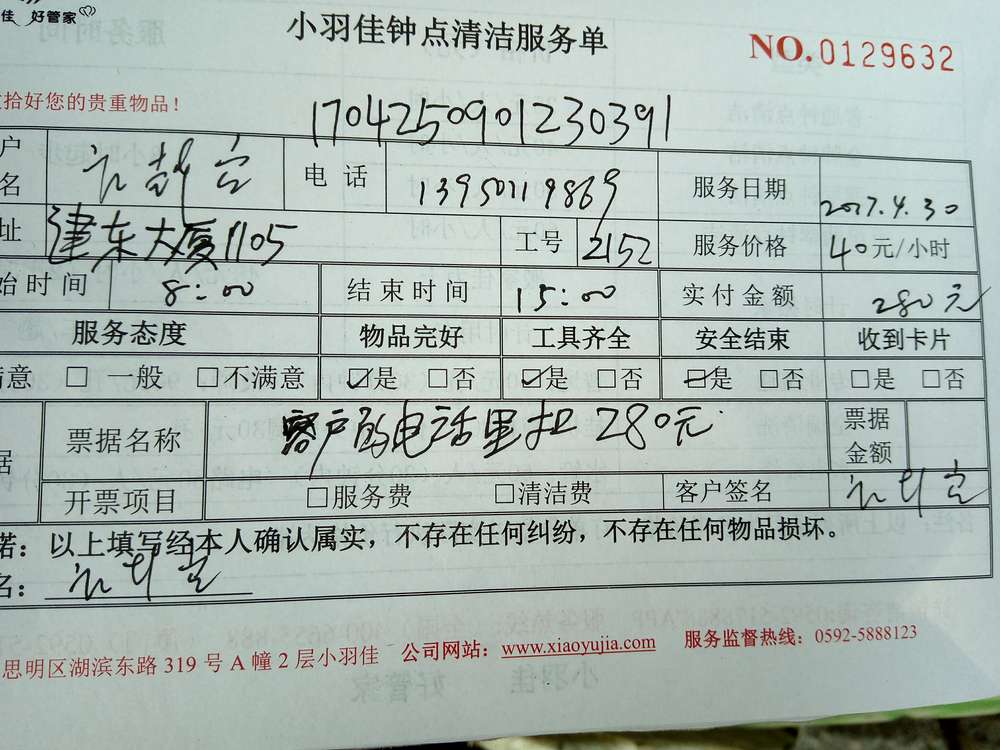 佳 好管家
小羽佳钟点清洁服务单
NO.0129632
拾好您的贵重物品!
1704250901230391
户名 电话 13950119869 服务日期 2017.4.30
址 建东大厦1105 工号 2152 服务价格 40元/小时
始时间 8:00 结束时间 15:00 实付金额 280元
服务态度 物品完好 工具齐全 安全结束 收到卡片
满意 □ 一般 □不满意 ☑是 □否 ☑是 □否 ☑是 □否 □是 □否
据 票据名称 客户的电话里扣280元 票据金额
开票项目 □服务费 □清洁费 客户签名
诺：以上填写经本人确认属实，不存在任何纠纷，不存在任何物品损坏。
名：
思明区湖滨东路 319 号 A 幢 2 层小羽佳 公司网站：www.xiaoyujia.com 服务监督热线：0592-5888123